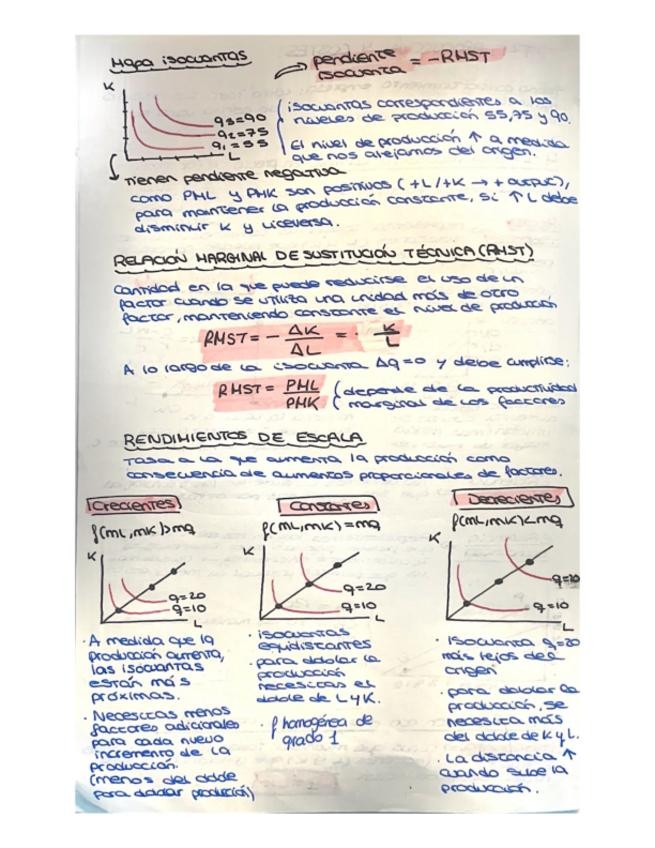 Mapa isocuantas
pendiente isocuanta = -RMST
K
q3=90
q2=75
q1=55
L
isocuantas correspondientes a los
niveles de producción 55,75 y 90.
El nivel de producción ↑ a medida
que nos alejamos del origen.
Tienen pendiente negativa
como PML y PMK son positivos (+L/+K → + output),
para mantener la producción constante, si ↑L debe
disminuir K y viceversa.
RELACIÓN MARGINAL DE SUSTITUCIÓN TÉCNICA (RMST)
cantidad en la que puede reducirse el uso de un
factor cuando se utiliza una unidad más de otro
factor, manteniendo constante el nivel de producción
RMST = - ΔK/ΔL = - K/L
A lo largo de la isocuanta Δq=0 y debe cumplirse:
RMST = PML/PMK (depende de la productividad
marginal de los factores
RENDIMIENTOS DE ESCALA
Tasa a la que aumenta la producción como
consecuencia de aumentos proporcionales de factores.
Crecientes
f(mL,mK)>mq
K
q=20
q=10
L
· A medida que la
producción aumenta,
las isocuantas
están más
próximas.
· Necesitas menos
factores adicionales
para cada nuevo
incremento de la
producción.
(menos del doble
para doblar producción)
Constantes
f(mL,mK)=mq
K
q=20
q=10
L
· isocuantas
equidistantes
· para doblar la
producción
necesitas el
doble de L y K.
· f homogénea de
grado 1
Decrecientes
f(mL,mK)<mq
K
q=20
q=10
L
· Isocuanta q=20
más lejos del
origen
· para doblar la
producción, se
necesita más
del doble de K y L.
· La distancia ↑
cuando sube la
producción.